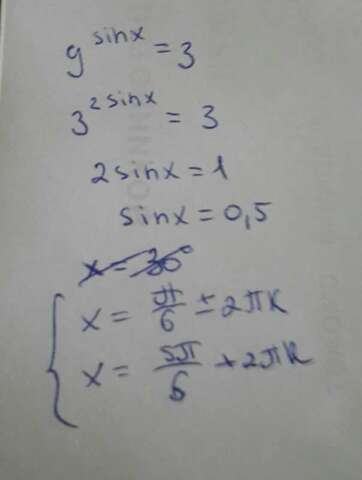 9^sinx = 3
3^2sinx = 3
2sinx = 1
sinx = 0,5
x = 30°
x = π/6 ± 2πk
x = 5π/6 + 2πk